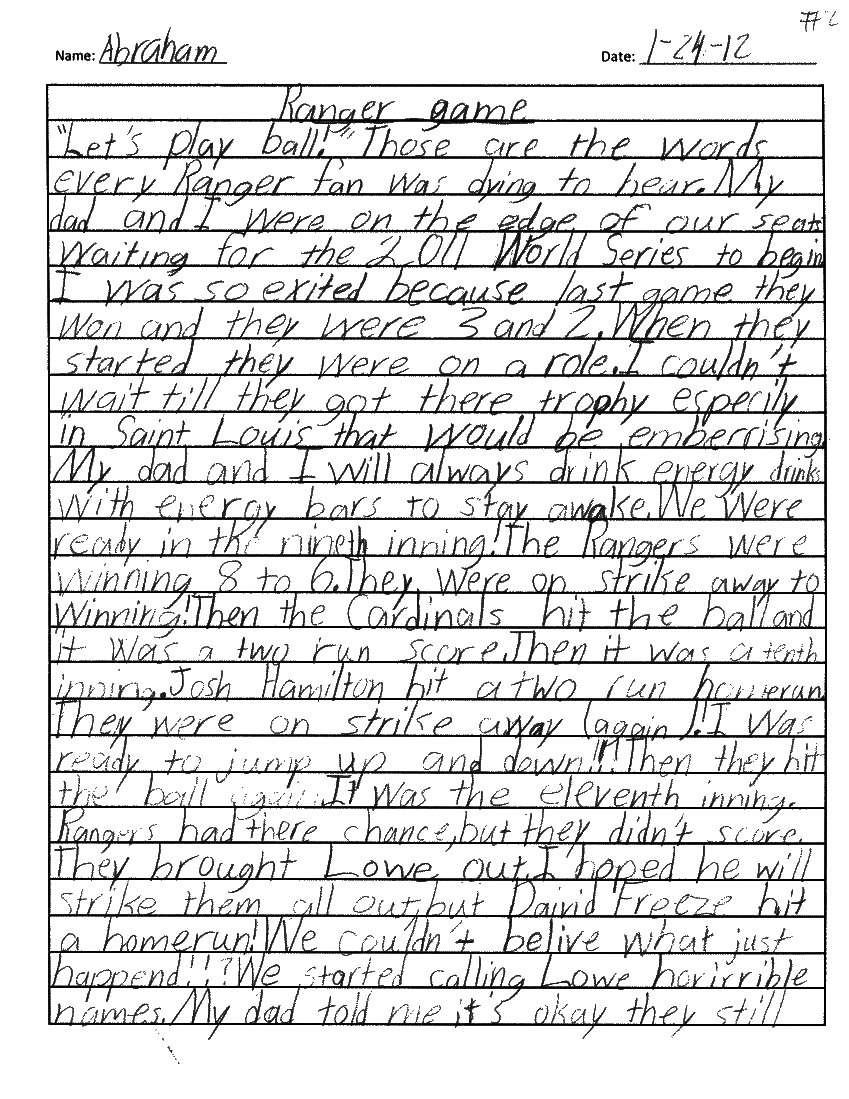 #2
Name: Abraham Date: 1-24-12
Ranger game
"Let's play ball!" Those are the words
every Ranger fan was dying to hear. My
dad and I were on the edge of our seats
waiting for the 2,011 World Series to begin
I was so exited because last game they
won and they were 3 and 2. When they
started they were on a role. I couldn't
wait till they got there trophy especily
in Saint Louis that would be emberrising
My dad and I will always drink energy drinks
with energy bars to stay awake. We were
ready in the nineth inning! The Rangers were
winning 8 to 6. They were on strike away to
winning! Then the Cardinals hit the ball and
it was a two run score. Then it was a tenth
inning. Josh Hamilton hit a two run homerun
They were on strike away (again)! I was
ready to jump up and down!!! Then they hit
the ball again. It was the eleventh inning.
Rangers had there chance, but they didn't score.
They brought Lowe out. I hoped he will
strike them all out, but Daivid Freeze hit
a homerun! We couldn't belive what just
happend!!!? We started calling Lowe horirrible
names. My dad told me it's okay they still